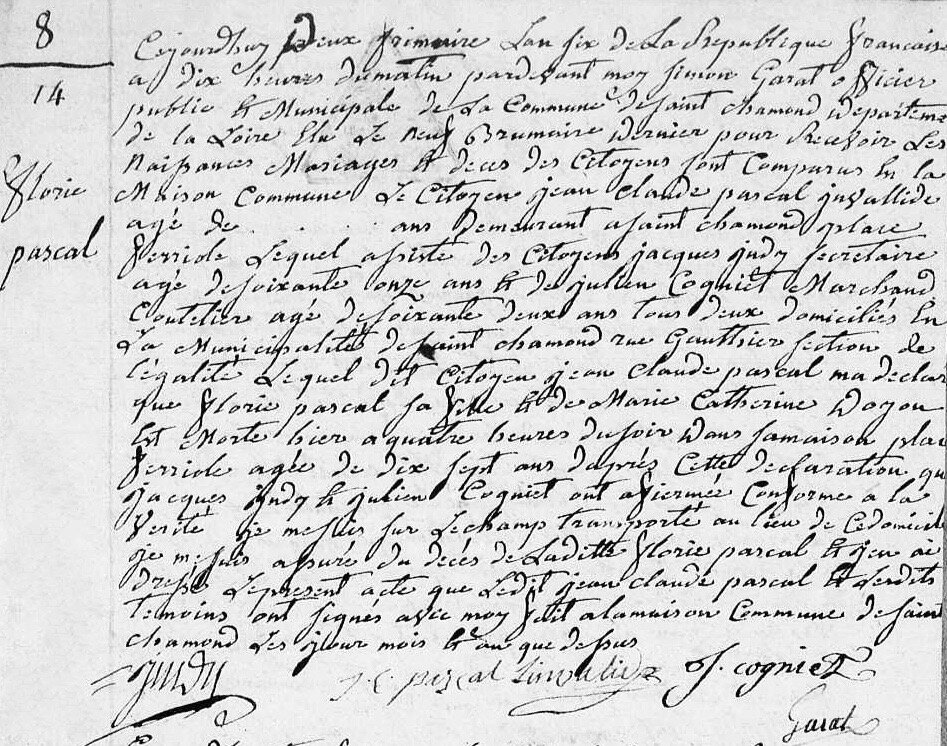 8
14
Florie
pascal
Cejourdhuy Deux frimaire Lan six de La Republique francaise
a dix heures dumatin pardevant moy simon Garat officier
public & Municipale de La Commune desaint chamond départeme
de la Loire Elu Le neuf Brumaire dernier pour Recevoir Les
Naissances Mariages & deces des Citoyens sont Comparus En la
Maison Commune Le Citoyen jean claude pascal juvallide
agé de . . . . ans demeurant asaint chamond place
ferriole Lequel assisté des Citoyens jacques judy secretaire
agé desoixante onze ans & de julien Cogniet Marchand
Coutelier agé desoixante deux ans tous deux domiciliés En
La Municipalité desaint chamond rue Gauthier section de
légalité Lequel dit Citoyen jean claude pascal ma declar
que florie pascal sa fille & de Marie Catherine Doyon
Est Morte hier aquatre heures dusoir Dans samaison plac
ferriole agée de dix sept ans daprés Cette declaration qu
jacques judy & julien Cogniet ont afiermée Conforme a la
Verité je messuis sur Lechamp transporté au lieu de Cedomicil
je messuis assuré du decés de Ladette florie pascal & jen ai
dressé Lepresent acte que Ledit jean claude pascal & Lesdits
temoins ont signés avec moy fait alamaison Commune de sain
chamond Les jour mois & an que dessus
JUDY J. C. pascal Linvalide J. cogniet
Garat